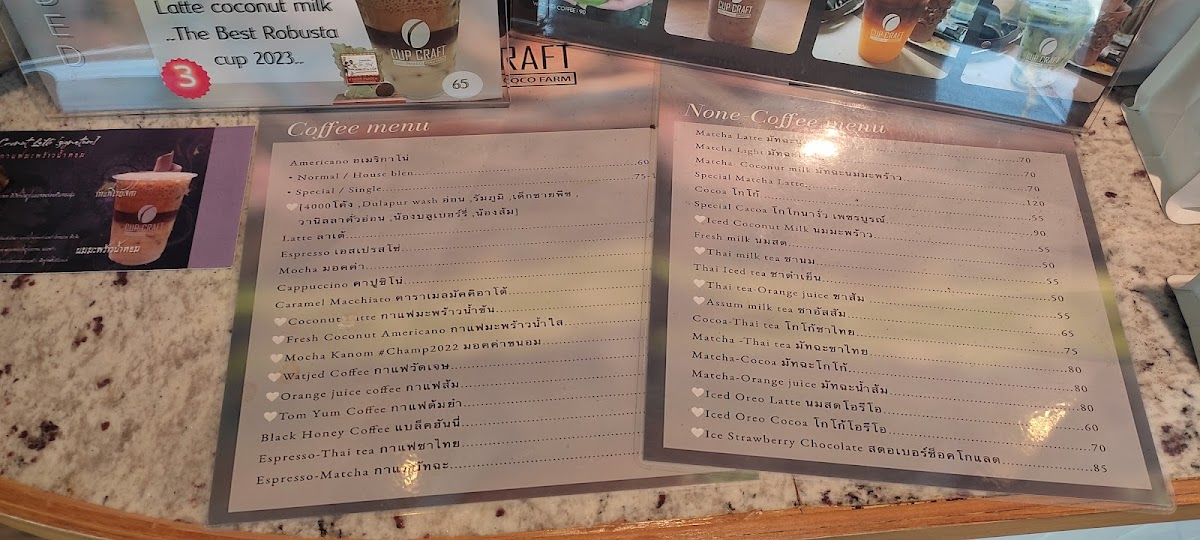 Latte coconut milk
..The Best Robusta
cup 2023..
3
CUP CRAFT
65
CRAFT
COCO FARM
CUP CRAFT
CUP CRAFT
CUP CRAFT
Coffee menu
Americano อเมริกาโน่
• Normal / House blen 60
• Special / Single 75-
[4000โค้ง ,Dulapur wash อ่อน ,รัมภูมิ ,เด็กชายพีช
วานิลลาคั่วอ่อน ,น้องบลูเบอร์รี่ ,น้องส้ม]
Latte ลาเต้
Espresso เอสเปรสโซ่
Mocha มอคค่า
Cappuccino คาปูชิโน่
Caramel Macchiato คาราเมลมัคคิอาโต้
Coconut Latte กาแฟมะพร้าวน้ำข้น
Fresh Coconut Americano กาแฟมะพร้าวน้ำใส
Mocha Kanom #Champ2022 มอคค่าขนอม
Watjed Coffee กาแฟวัดเจษ
Orange juice coffee กาแฟส้ม
Tom Yum Coffee กาแฟต้มยำ
Black Honey Coffee แบล็คฮันนี่
Espresso-Thai tea กาแฟชาไทย
Espresso-Matcha กาแฟมัทฉะ
None-Coffee menu
Matcha Latte มัทฉะ 70
Matcha Light มัทฉะ
Matcha- Coconut milk มัทฉะนมมะพร้าว 70
Special Matcha Latte 70
Cocoa โกโก้ 120
Special Cacoa โกโก้นางั่ว เพชรบูรณ์ 55
Iced Coconut Milk นมมะพร้าว 90
Fresh milk นมสด 55
Thai milk tea ชานม 50
Thai Iced tea ชาดำเย็น 55
Thai tea-Orange juice ชาส้ม 50
Assum milk tea ชาอัสสัม 55
Cocoa-Thai tea โกโก้ชาไทย 65
Matcha -Thai tea มัทฉะชาไทย 75
Matcha-Cocoa มัทฉะโกโก้ 80
Matcha-Orange juice มัทฉะน้ำส้ม 80
Iced Oreo Latte นมสดโอรีโอ 80
Iced Oreo Cocoa โกโก้โอรีโอ 60
70
Ice Strawberry Chocolate สตอเบอร์ช็อคโกแลต 85
กาแฟมะพร้าวน้ำหอม
CUP CRAFT
นมมะพร้าวน้ำหอม